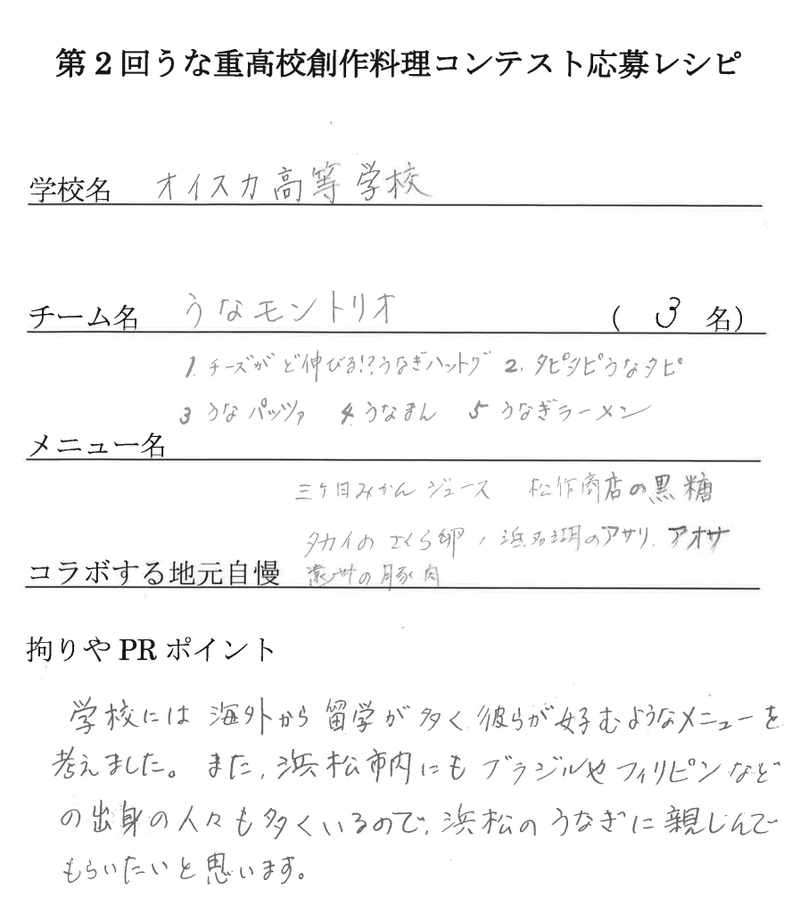 第2回うな重高校創作料理コンテスト応募レシピ
学校名 オイスカ高等学校
チーム名 うなモントリオ ( 3 名)
1. チーズがど伸びる!?うなぎハットグ 2. タピタピうなタピ
3 うなパッツァ 4. うなまん 5 うなぎラーメン
メニュー名
三ケ日みかんジュース 松作商店の黒糖
タカイのさくら卵、浜名湖のアサリ、アオサ
コラボする地元自慢 遠州の豚肉
拘りやPRポイント
学校には海外から留学が多く彼らが好むようなメニューを
考えました。また、浜松市内にもブラジルやフィリピンなど
の出身の人々も多くいるので、浜松のうなぎに親しんで
もらいたいと思います。